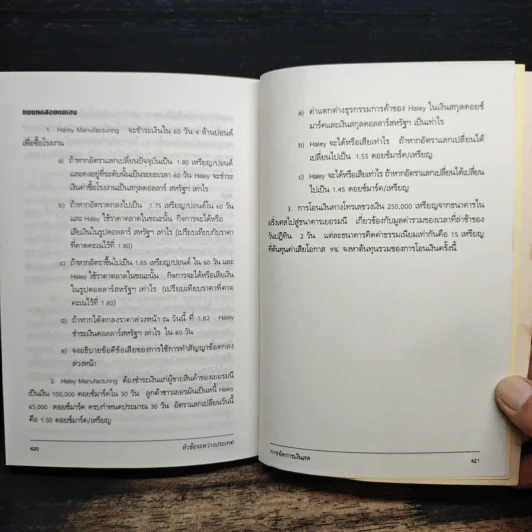 แบบทดสอบตนเอง
1. Haley Manufacturing จะชำระเงินใน 60 วัน 4 ล้านปอนด์
เพื่อซื้อโรงงาน
a) ถ้าหากอัตราแลกเปลี่ยนปัจจุบันเป็น 1.80 เหรียญ/ปอนด์
และคงอยู่ที่ระดับนั้นเป็นระยะเวลา 60 วัน Haley จะชำระ
เงินค่าซื้อโรงงานเป็นสกุลดอลลาร์ สหรัฐฯ เท่าไร
b) ถ้าหากอัตราตกลงไปเป็น 1.75 เหรียญ/ปอนด์ใน 60 วัน
และ Haley ใช้ราคาตลาดในขณะนั้น กิจการจะได้หรือ
เสียเงินในรูปดอลลาร์ สหรัฐฯ เท่าไร (เปรียบเทียบกับราคา
ที่คาดคะเนไว้ที่ 1.80)
c) ถ้าหากอัตราขึ้นไปเป็น 1.85 เหรียญ/ปอนด์ ใน 60 วัน และ
Haley ใช้ราคาตลาดในขณะนั้น กิจการจะได้หรือเสียเงิน
ในรูปดอลลาร์สหรัฐฯ เท่าไร (เปรียบเทียบกับราคาที่คาด
คะเนไว้ที่ 1.80)
d) ถ้าหากได้ตกลงราคาล่วงหน้า ณ วันนี้ ที่ 1.82 Haley
ชำระเงินดอลลาร์สหรัฐฯ เท่าไร ใน 60 วัน
e) จงอธิบายข้อดีข้อเสียของการใช้การทำสัญญาข้อตกลง
ล่วงหน้า
2. Haley Manufacturing ต้องชำระเงินแก่ผู้ขายสินค้าของเยอรมนี
เป็นเงิน 100,000 ดอยช์มาร์คใน 30 วัน ลูกค้าชาวเยอรมันเป็นหนี้ Haley
45,000 ดอยช์มาร์ค ครบกำหนดประมาณ 30 วัน อัตราแลกเปลี่ยนวันนี้
คือ 1.50 ดอยช์มาร์ค/เหรียญ
420
หัวข้อระหว่างประเทศ
a) ค่าแตกต่างธุรกรรมการค้าของ Haley ในเงินสกุลดอยช์
มาร์คและเงินสกุลดอลลาร์สหรัฐฯ เป็นเท่าไร
b) Haley จะได้หรือเสียเท่าไร ถ้าหากอัตราแลกเปลี่ยนได้
เปลี่ยนไปเป็น 1.55 ดอยช์มาร์ค/เหรียญ
c) Haley จะได้หรือเสียเท่าไร ถ้าหากอัตราแลกเปลี่ยนได้เปลี่ยน
ไปเป็น 1.45 ดอยช์มาร์ค/เหรียญ
3. การโอนเงินทางโทรเลขวงเงิน 250,000 เหรียญจากธนาคารใน
ฝรั่งเศสไปสู่ธนาคารเยอรมนี เกี่ยวข้องกับมูลค่ารวมของเวลาที่ล่าช้าของ
วันปฏิทิน 2 วัน แต่ละธนาคารคิดค่าธรรมเนียมเท่ากันคือ 15 เหรียญ
ที่ต้นทุนค่าเสียโอกาส 9% จงหาต้นทุนรวมของการโอนเงินครั้งนี้
การจัดการเงินสด
421